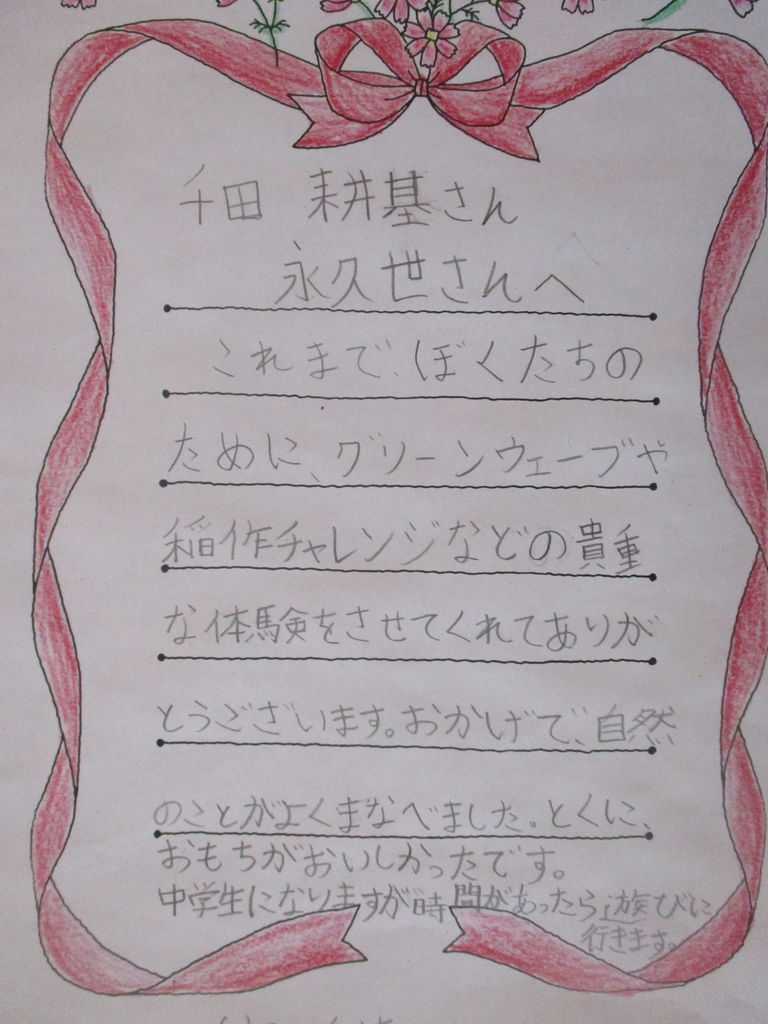 千田 耕基さん
永久世さんへ
これまで、ぼくたちの
ために、グリーンウェーブや
稲作チャレンジなどの貴重
な体験をさせてくれてありが
とうございます。おかげで、自然
のことがよくまなべました。とくに、
おもちがおいしかったです。
中学生になりますが時間があったら遊びに
行きます。